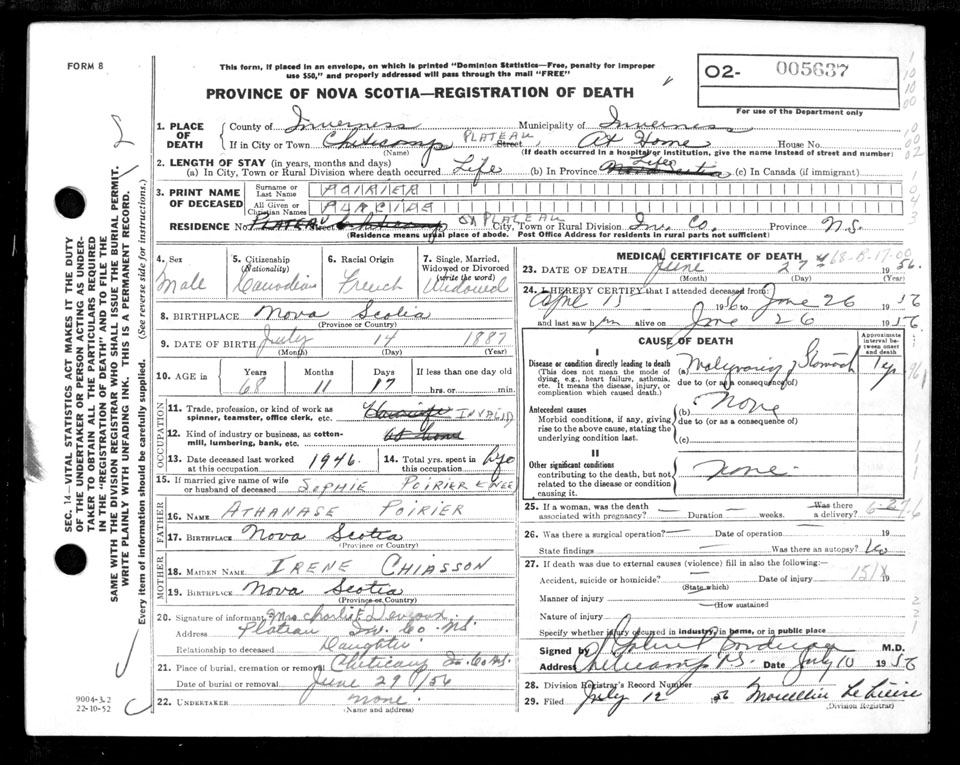 FORM 8
This form, if placed in an envelope, on which is printed "Dominion Statistics—Free, penalty for improper
use $50," and properly addressed will pass through the mail "FREE"
02- 005637
For use of the Department only
PROVINCE OF NOVA SCOTIA—REGISTRATION OF DEATH
1. PLACE OF DEATH
County of Inverness Municipality of Inverness
If in City or Town Cheticamp PLATEAU Street, At Home House No.
(Name) (If death occurred in a hospital or institution, give the name instead of street and number)
2. LENGTH OF STAY (in years, months and days)
(a) In City, Town or Rural Division where death occurred Life (b) In Province Life Nova Scotia (c) In Canada (if immigrant)
3. PRINT NAME OF DECEASED
Surname or Last Name POIRIER
All Given or Christian Names PLACIDE
RESIDENCE No. PLATEAU Street Cheticamp or PLATEAU City, Town or Rural Division Inv. Co. Province N.S.
(Residence means usual place of abode. Post Office Address for residents in rural parts not sufficient)
4. Sex Male
5. Citizenship (Nationality) Canadian
6. Racial Origin French
7. Single, Married, Widowed or Divorced (write the word) Widowed
8. BIRTHPLACE Nova Scotia
(Province or Country)
9. DATE OF BIRTH July 14 1887
(Month) (Day) (Year)
10. AGE in Years 68 Months 11 Days 17 If less than one day old hrs. or min.
OCCUPATION
11. Trade, profession, or kind of work as spinner, teamster, office clerk, etc. Housewife INVALID
12. Kind of industry or business, as cotton-mill, lumbering, bank, etc. At home
13. Date deceased last worked at this occupation 1946.
14. Total yrs. spent in this occupation
15. If married give name of wife or husband of deceased SOPHIE POIRIER E NEE
FATHER
16. NAME ATHANASE POIRIER
17. BIRTHPLACE Nova Scotia
(Province or Country)
MOTHER
18. MAIDEN NAME IRENE CHIASSON
19. BIRTHPLACE Nova Scotia
(Province or Country)
20. Signature of informant Mrs Charlie F Deveaux
Address Plateau Inv. Co. N.S.
Relationship to deceased Daughter
21. Place of burial, cremation or removal Cheticamp In. Co N.S.
Date of burial or removal June 29/56
22. UNDERTAKER none
(Name and address)
MEDICAL CERTIFICATE OF DEATH
68-B-17-00
23. DATE OF DEATH June 27 1956.
(Month) (Day) (Year)
24. I HEREBY CERTIFY that I attended deceased from
April 15 1956 to June 26 1956
and last saw him alive on June 26 1956
CAUSE OF DEATH
Approximate interval between onset and death
I
Disease or condition directly leading to death
(This does not mean the mode of dying, e.g., heart failure, asthenia, etc. It means the disease, injury, or complication which caused death.)
(a) Malignancy of Stomach 1 yr
due to (or as a consequence of)
Antecedent causes
Morbid conditions, if any, giving rise to the above cause, stating the underlying condition last.
(b) None
due to (or as a consequence of)
(c)
II
Other significant conditions
contributing to the death, but not related to the disease or condition causing it.
None-
25. If a woman, was the death associated with pregnancy? — Duration — weeks. Was there a delivery?
26. Was there a surgical operation? — Date of operation 19
State findings — Was there an autopsy? No
27. If death was due to external causes (violence) fill in also the following:—
Accident, suicide or homicide? — Date of injury 19
(State which)
Manner of injury
(How sustained
Nature of injury
Specify whether injury occurred in industry, in home, or in public place
Signed by M.D.
Address Cheticamp N.S. Date July 10 1956
28. Division Registrar's Record Number
29. Filed July 12 1956
(Division Registrar)
SEC. 14—VITAL STATISTICS ACT MAKES IT THE DUTY
OF THE UNDERTAKER OR PERSON ACTING AS UNDER-
TAKER TO OBTAIN ALL THE PARTICULARS REQUIRED
IN THE "REGISTRATION OF DEATH" AND TO FILE THE
SAME WITH THE DIVISION REGISTRAR WHO SHALL ISSUE THE BURIAL PERMIT.
WRITE PLAINLY WITH UNFADING INK. THIS IS A PERMANENT RECORD.
Every item of information should be carefully supplied. (See reverse side for instructions.)
9004-3.2
22-10-52